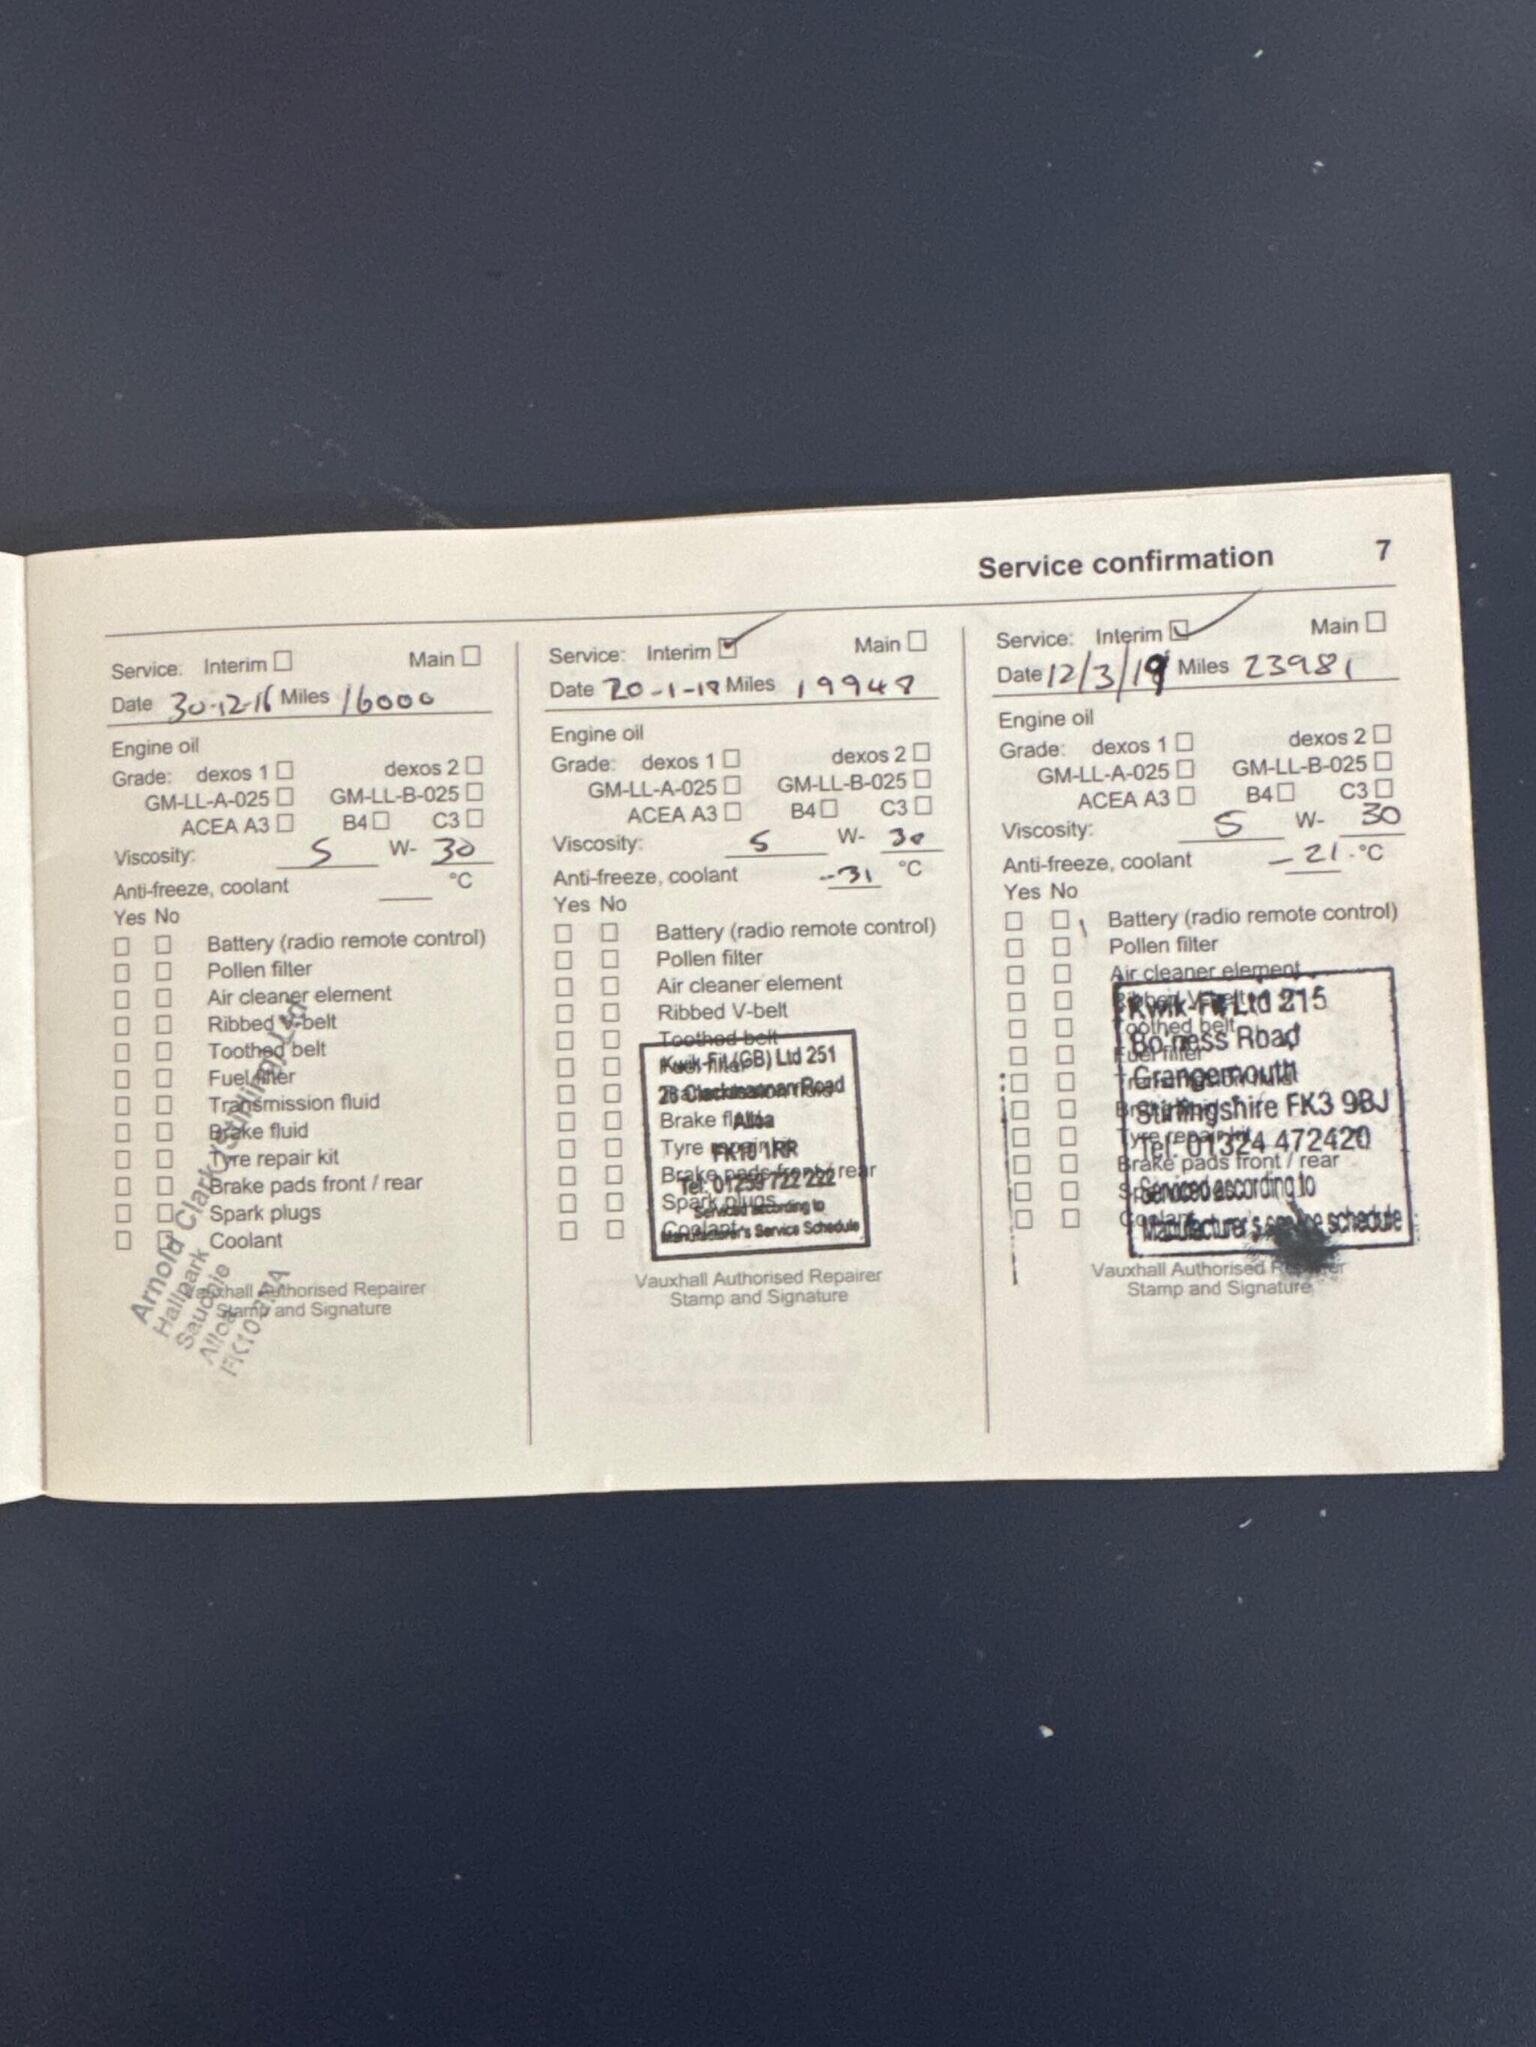 Service confirmation 7
Service: Interim Main
Date 30-12-16 Miles 16000
Engine oil
Grade: dexos 1 dexos 2
GM-LL-A-025 GM-LL-B-025
ACEA A3 B4 C3
Viscosity: 5 W- 30
Anti-freeze, coolant °C
Yes No
Battery (radio remote control)
Pollen filter
Air cleaner element
Ribbed V-belt
Toothed belt
Fuel filter
Transmission fluid
Brake fluid
Tyre repair kit
Brake pads front / rear
Spark plugs
Coolant
Vauxhall Authorised Repairer
Stamp and Signature
Arnold Clark (Stirling) Ltd
Hallpark
Sauchie
Alloa
Service: Interim Main
Date 20-1-18 Miles 19948
Engine oil
Grade: dexos 1 dexos 2
GM-LL-A-025 GM-LL-B-025
ACEA A3 B4 C3
Viscosity: 5 W- 30
Anti-freeze, coolant -31 °C
Yes No
Battery (radio remote control)
Pollen filter
Air cleaner element
Ribbed V-belt
Toothed belt
Fuel filter
Transmission fluid
Brake fluid
Tyre repair kit
Brake pads front / rear
Spark plugs
Coolant
Kwik-Fit (GB) Ltd 251
Clackmannan Road
Alloa
FK10 1RR
Tel: 01259 722 222
Serviced according to
Manufacturer's Service Schedule
Vauxhall Authorised Repairer
Stamp and Signature
Service: Interim Main
Date 12/3/19 Miles 23981
Engine oil
Grade: dexos 1 dexos 2
GM-LL-A-025 GM-LL-B-025
ACEA A3 B4 C3
Viscosity: 5 W- 30
Anti-freeze, coolant -21 °C
Yes No
Battery (radio remote control)
Pollen filter
Air cleaner element
Ribbed V-belt
Toothed belt
Fuel filter
Transmission fluid
Brake fluid
Tyre repair kit
Brake pads front / rear
Spark plugs
Coolant
Kwik-Fit Ltd 215
Bo'ness Road
Grangemouth
Stirlingshire FK3 9BJ
Tel: 01324 472420
Serviced according to
Manufacturer's service schedule
Vauxhall Authorised Repairer
Stamp and Signature